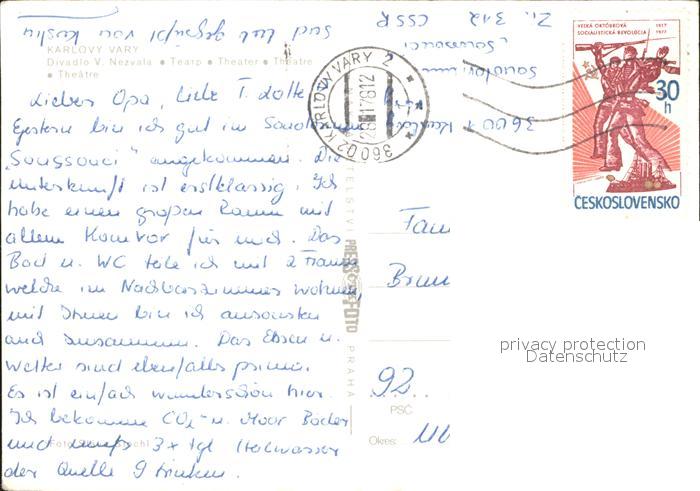 Sind lieb gegrüßt von
KARLOVY VARY
Divadlo V. Nezvala ● Театр ● Theater ● Theatre
● Théâtre
Lieber Opa, Liebe T. Lotte
Gestern bin ich gut im
"Soussouci" angekommen. Die
Unterkunft ist erstklassig. Ich
habe einen großen Raum mit
allem Komfor für mich. Das
Bad u. WC teile ich mit 2 Frauen
welche im Nachbarzimmer wohnen,
mit Ihnen bin ich ansonsten
auch zusammen. Das Essen u.
Wetter sind ebenfalls prima.
Es ist einfach wunderschön hier.
Ich bekomme CO₂- u. Moor Bäder
und 3x tgl Heilwasser
der Quelle 9 trinken.
Zi. 312
ČSSR
Sanatorium
"Soussouci"
360 01
360 02 KARLOVY VARY 2
VELKÁ OKTÓBROVÁ
SOCIALISTICKÁ REVOLÚCIA
1917
1977
30
h
ČESKOSLOVENSKO
PRESSFOTO
PRAHA
92
PSČ
Okres:
privacy protection
Datenschutz